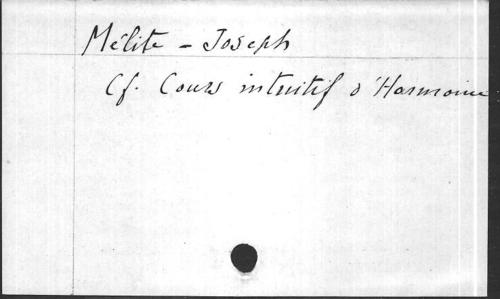 Mélite - Joseph
Cf. Cours intuitif d'Harmonie